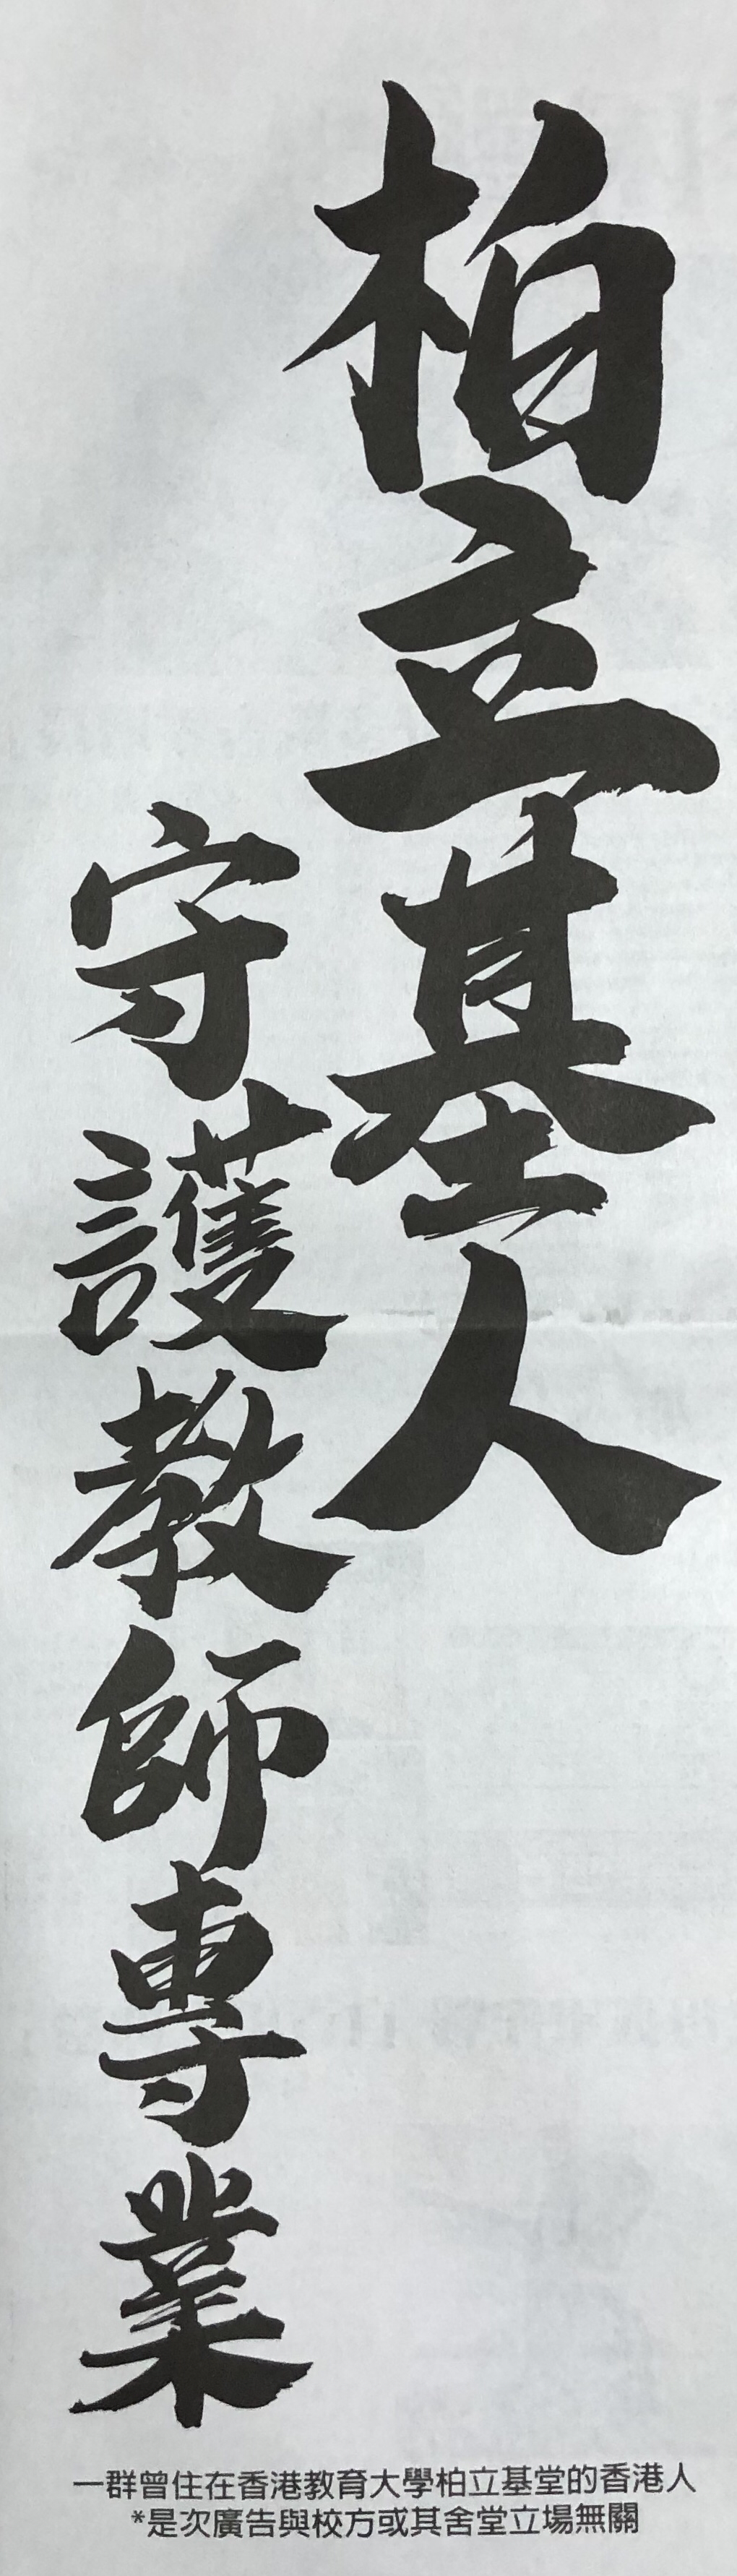 柏立基人
守護教師專業
一群曾住在香港教育大學柏立基堂的香港人
*是次廣告與校方或其舍堂立場無關